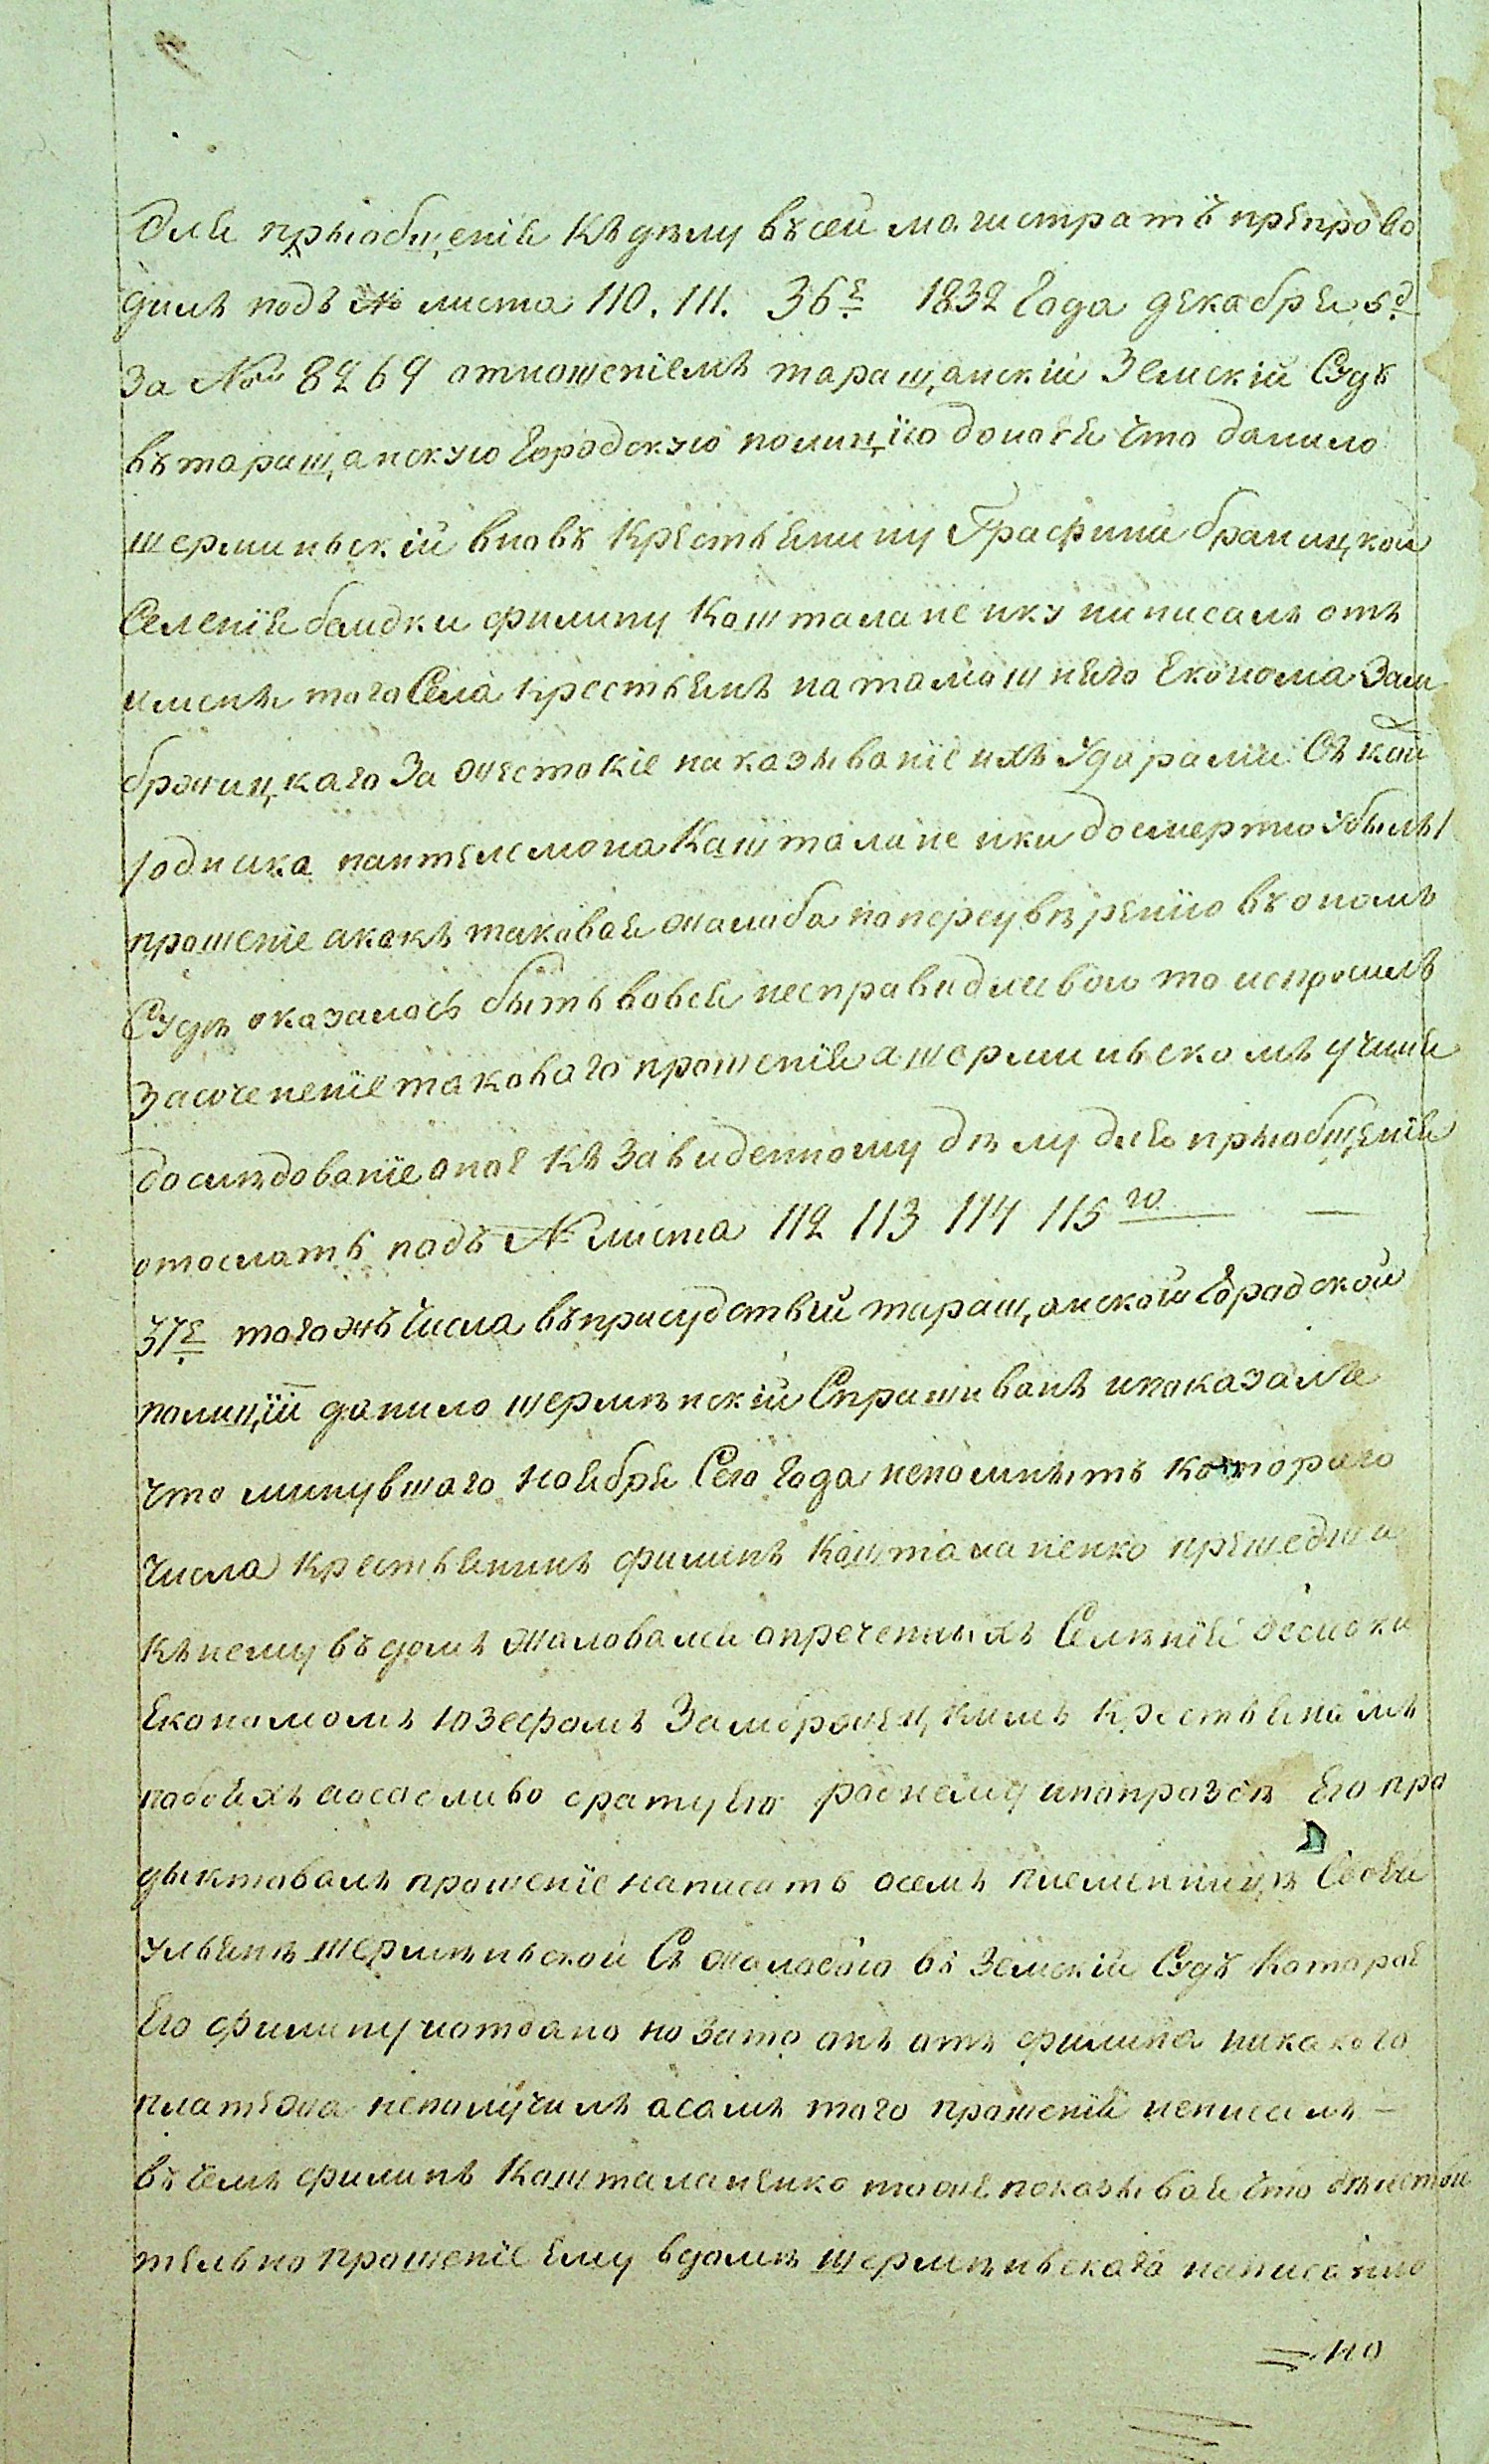 для пріобщенія къ делу въ сей магистратъ препрово
дилъ подъ № листа 110. 111. 36е 1832 Года декабря 5д
За № 8269 отношеніемъ таращанскій Земскій Судъ
въ таращанскую Городскую полицію донося что данило
шерминьскій вновь Крестьянину Графини браницкой
Селенія бамдки филипу Кашталаненку написалъ отъ
именъ того Села крестьянъ на тамошнего Економа Зам
брожицкаго За жестокіе наказываніе ихъ Ударами съ кои
/одинка пантелемона Кашталаненки досмертю убилъ/
прошеніе акакъ таковая жалоба попереувѣренію въ ономъ
Судѣ оказалось быть вовсе несправидливою то испросилъ
За сочененіе таковаго прошенія ашерминьскомъ учиня
дослѣдованіе оное Къ Завиденному дѣлу для пріобщенія
отослать подъ № листа 112 113 114 115го
37е того жъ числа въ присудствій таращанской Городской
полицій данило шермѣнскій Спрашиванъ ипоказалъ
что минувшаго ноября Сего Года непомнѣтъ котораго
числа крестьянинъ филипъ Кашталаненко пришедши
Къ нему въ домъ жаловался опреченныхъ Селѣнія
Економомъ юзефомъ Замброжицкимъ крестьянамъ
побояхъ аособливо брату его роднему ипопрозбѣ Его про
дыктовалъ прошеніе написать осемъ племянницѣ Своей
ульянѣ шермѣньской Съ жалобою въ Земскій Судъ Которое
Его филипу иотдано но Зато онъ отъ филипа никакого
платежа неполучилъ асамъ того прошеній неписалъ —
въ чемъ филипъ Кашталаненко тоже показывая что дѣйстви
тельно прошеніе Ему вдомѣ шермѣньскаго написанно
= но